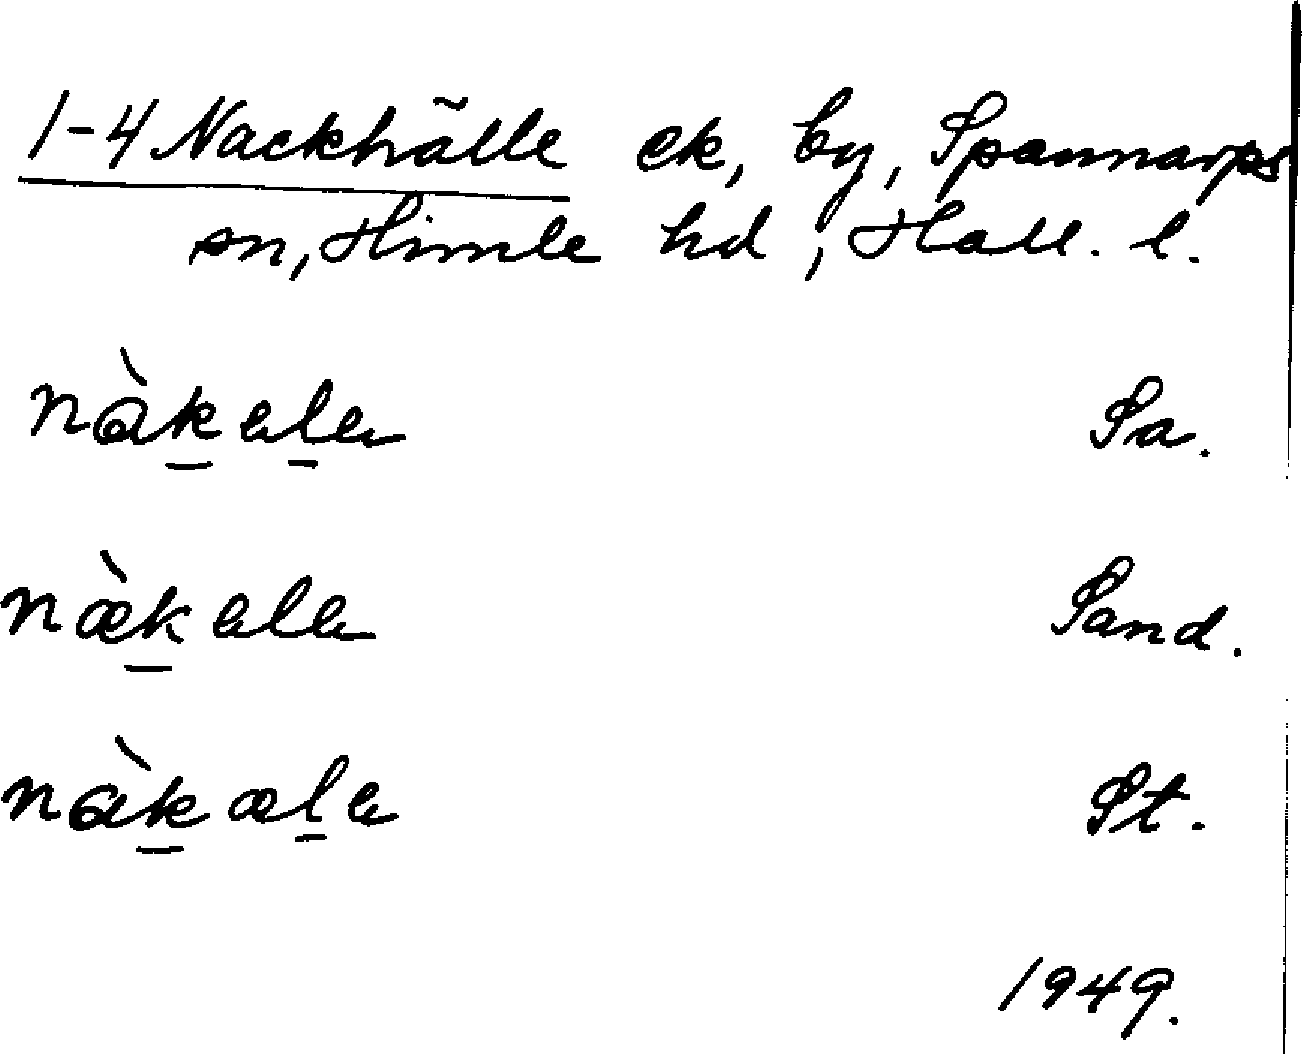 1-4 Nackhälle ek, by, Spannarps
sn, Himle hd, Hall. l.
nàkala Sa.
nækala Sand.
nàkæla St.
1949.